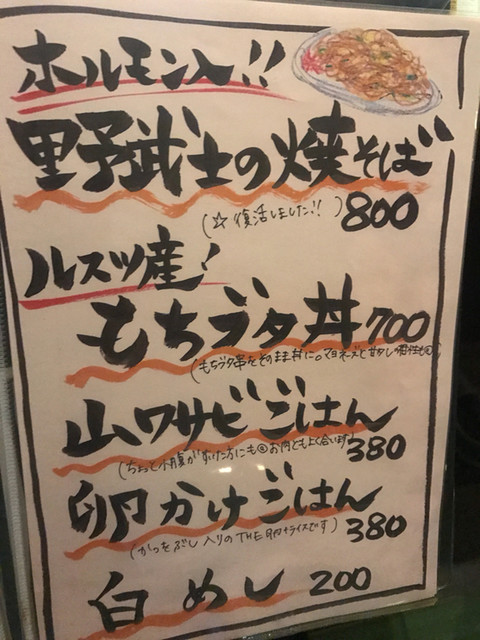 ホルモン入!!
野武士の焼そば
(☆復活しました!!) 800
ルスツ産!
もちブタ丼 700
(もちブタ串をそのまま丼に。マヨネーズと甘タレの相性も
山ワサビごはん
(ちょっと小腹がすいた方にも お肉ともよく合います) 380
卵かけごはん
(かつをぶし入りのTHE卵+ライスです) 380
白めし 200